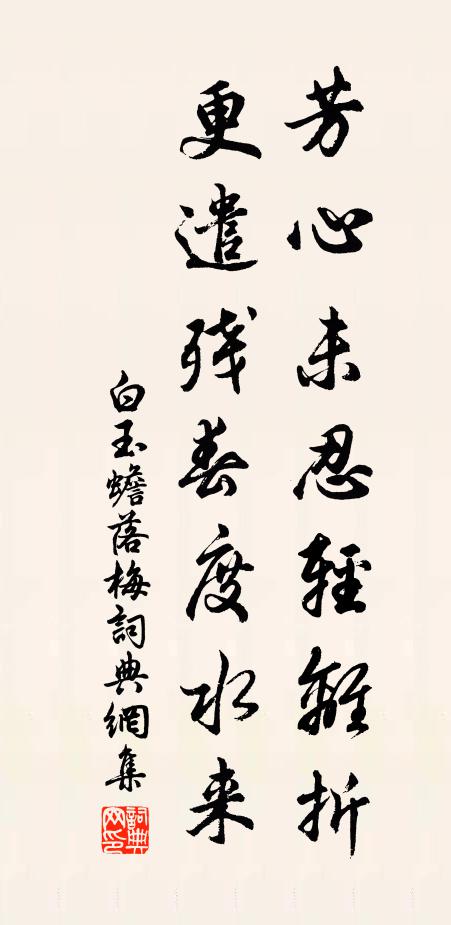 芳心未忍輕離折
更遣殘春度水来
白玉蟾落梅詞典網集
詞典網印